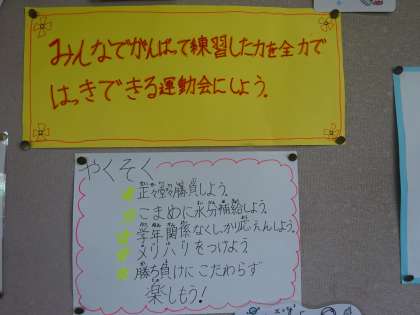 みんなでがんばって練習した力を全力で
はっきできる運動会にしよう。
やくそく
正々堂々勝負しよう。
こまめに水分補給しよう。
学年関係なくしっかり応えんしよう。
メリハリをつけよう
勝ち負けにこだわらず
楽しもう!